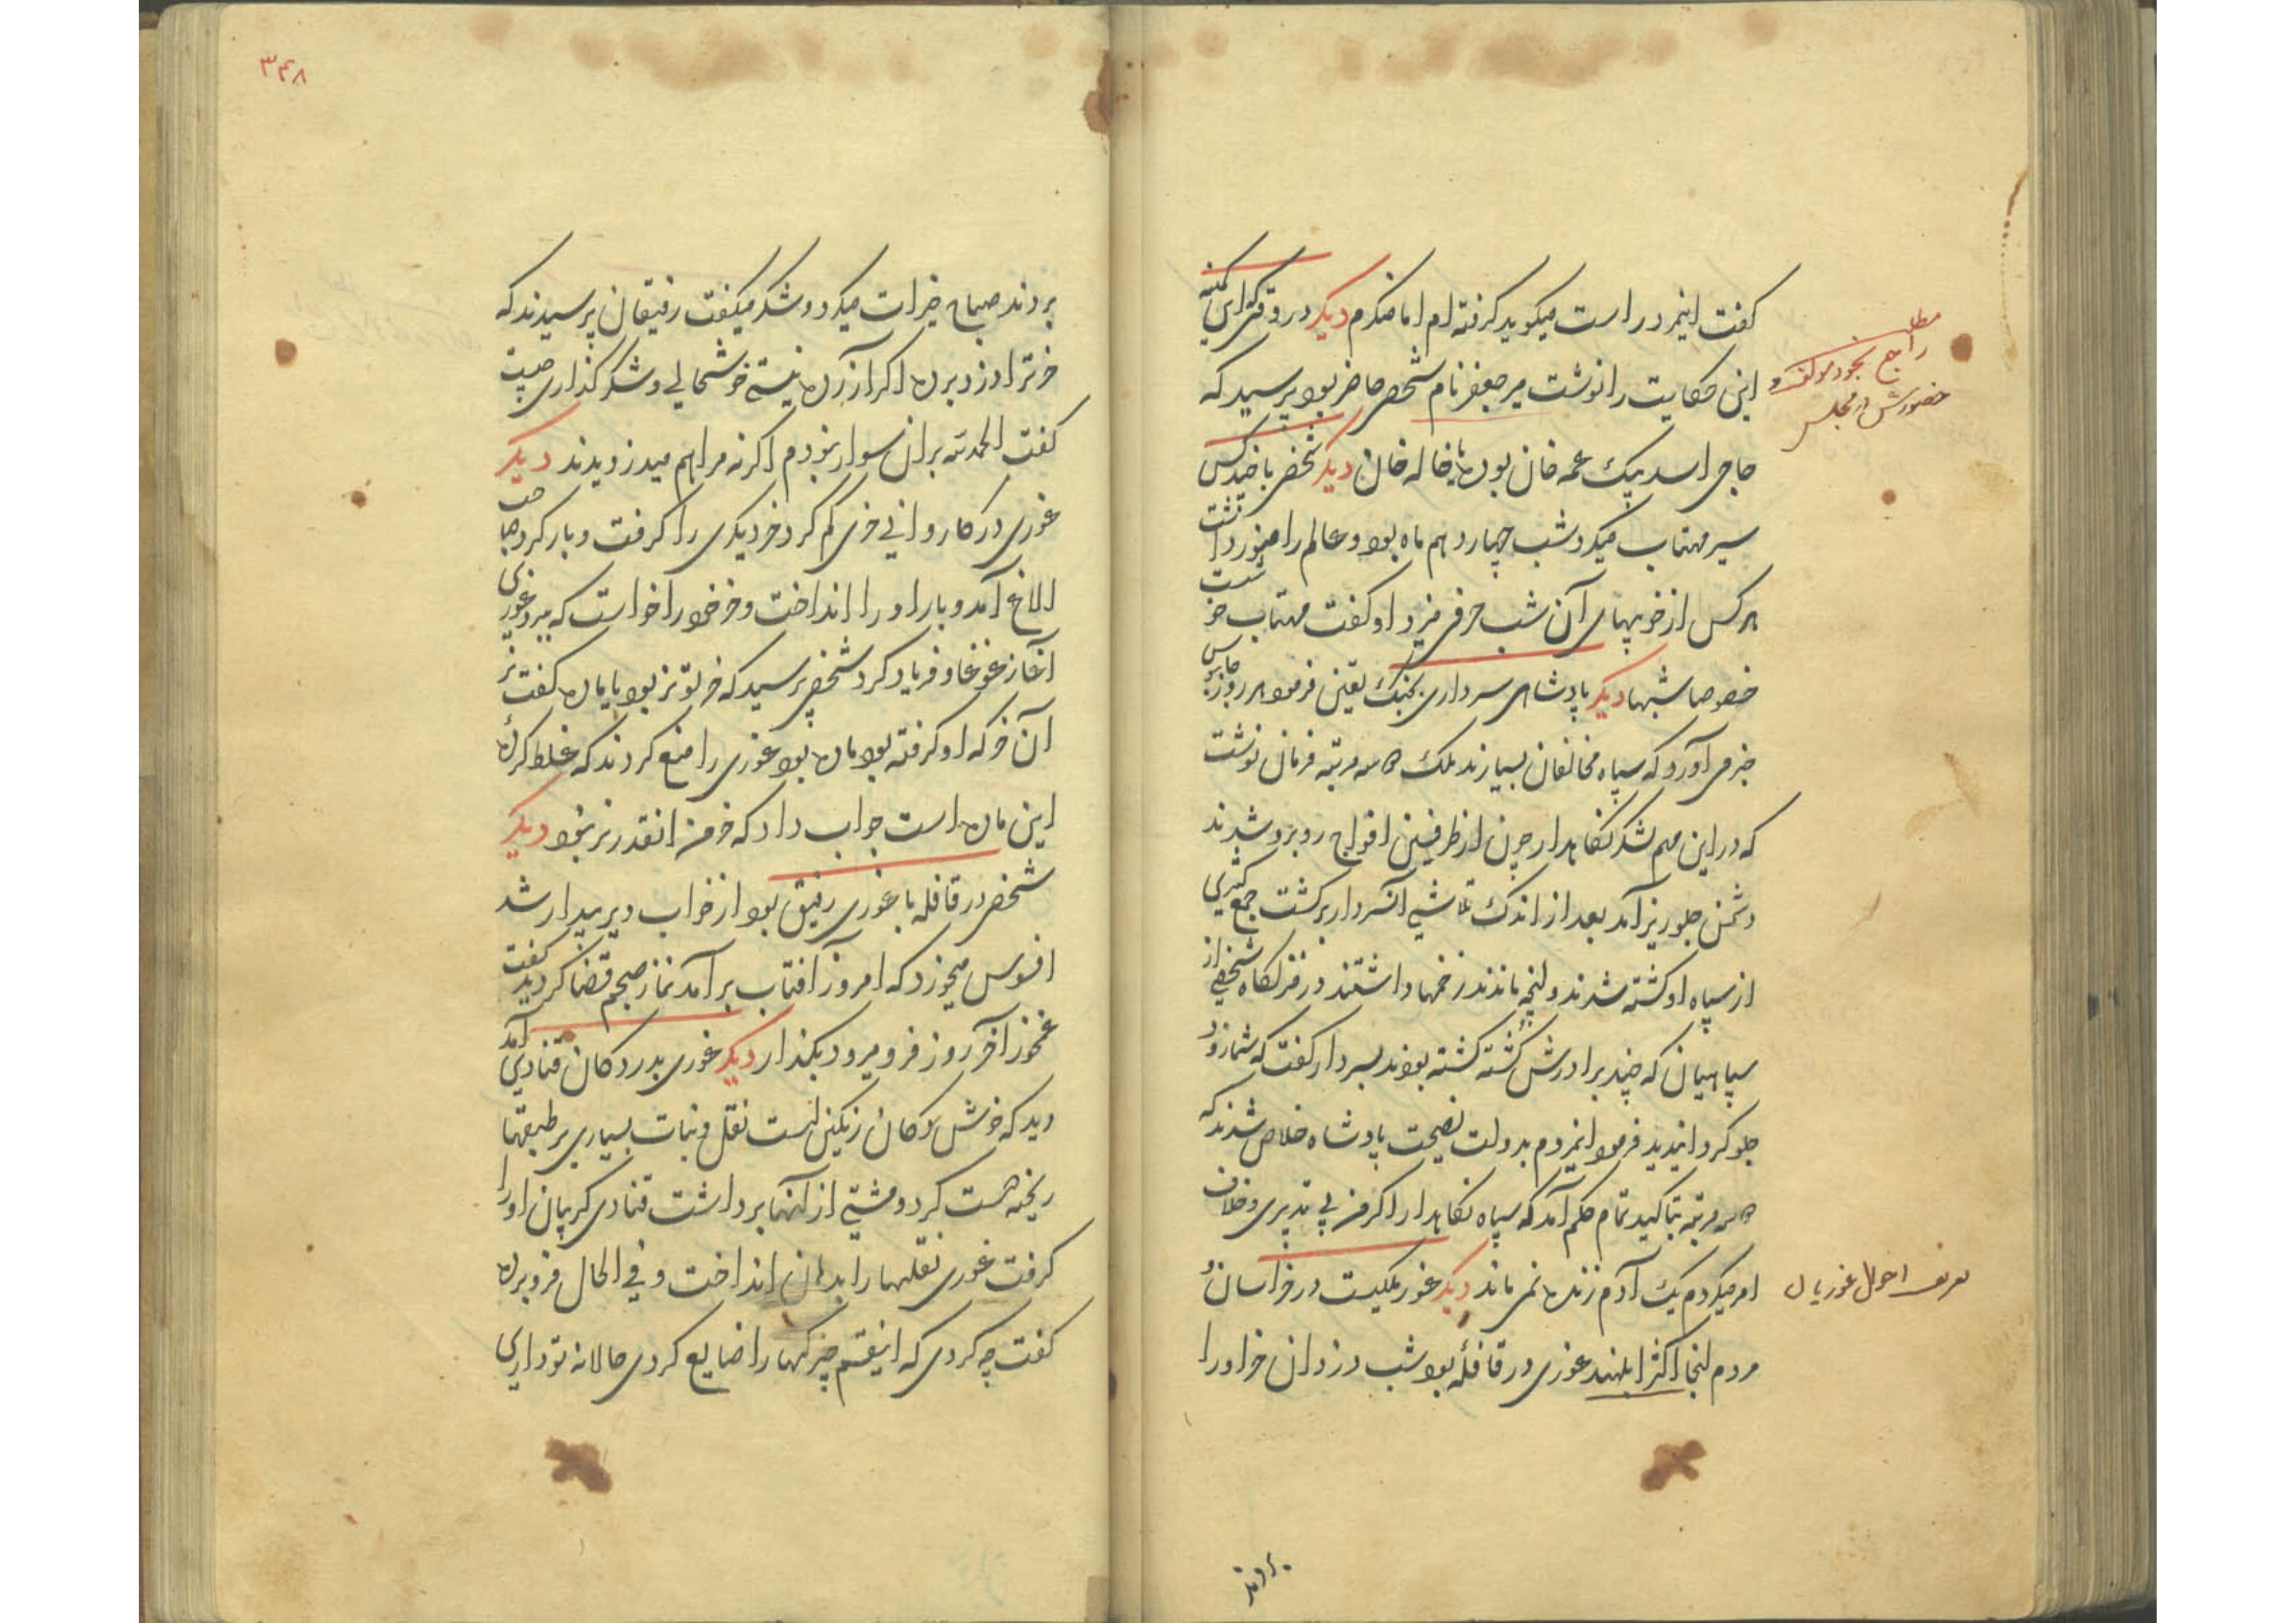 گفت اینمرد راست میگوید گرفته ام اما منکرم دیگر در وقتیکه این کمینه
این حکایت را نوشت میر جعفر نام شخصی حاضر بود پرسید که
حاجی اسد بیک عمه خان بوده یا خاله خان دیگر شخصی با چند کس
سیر مهتاب میکرد شب چهاردهم ماه بود و عالم را منور داشت
هر کس از خوبیهای آن شب حرفی میزد او گفت مهتاب خوبست
خصوصا شبها دیگر پادشاهی سرداری بجنگ تعین فرمود هر روز جاسوس
خبر می آورد که سپاه مخالفان بسیارند ملک سه مرتبه فرمان نوشت
که در این مهم لشکر نگاهدار چون از طرفین افواج روبرو شدند
دشمن جلوریز آمد بعد از اندک تلاشی آنسردار برگشت جمع کثیری
از سپاه او کشته شدند و آنچه ماندند زخمها داشتند در منزلگاه شخصی از
سپاهیان که چند برادرش کشته گشته بودند بسردار گفت که شما زود
جلو گردانیدید فرمود اینمردم بدولت نصیحت پادشاه خلاص شدند که
سه مرتبه بتاکید تمام حکم آمد که سپاه نگاهدار اگر من بی تدبیری و خلاف
امر میکردم یک آدم زنده نمی ماند دیگر غور ملکیست در خراسان و
مردم آنجا اکثر ابلهند غوری در قافله بود شب دزدان خر او را
بردند
مطلب
راجع بخود مولف و
حضورش در مجلس
تعریف احوال غوریان
۳۴۸
بردند صباح خیرات میکرد و شکر میگفت رفیقان پرسیدند که
خر ترا دزد برده اگر آزرده نیستی خوشحالی و شکر گذاری چیست
گفت الحمدلله بران سوار نبودم اگرنه مرا هم میدزدیدند دیگر
غوری در کاروانی خری گم کرد خر دیگری را گرفت و بار کرد صاحب
الاغ آمد و بار او را انداخت و خر خود را خواست که ببرد غوری
آغاز غوغا و فریاد کرد شخصی پرسید که خر تو نر بود یا ماده گفت نر
آن خر که او گرفته بود ماده بود غوری را منع کردند که غلط کرده
این ماده است جواب داد که خر من انقدر نر نبود دیگر
شخصی در قافله با غوری رفیق بود از خواب دیر بیدار شد
افسوس میخورد که امروز آفتاب برآمد نماز صبحم قضا گردید گفت
غم مخور آخر روز فرو میرود بگذار دیگر غوری بدر دکان قنادی آمد
دید که خوش دکان رنگین است نقل و نبات بسیاری بر طبقها
ریخته جست کرد و مشتی از آنها برداشت قنادی گریبان او را
گرفت غوری نقلها را بدهان انداخت و فی الحال فرو برده
گفت چه کردی که اینقسم چیزها را ضایع کردی حالا نه تو داری